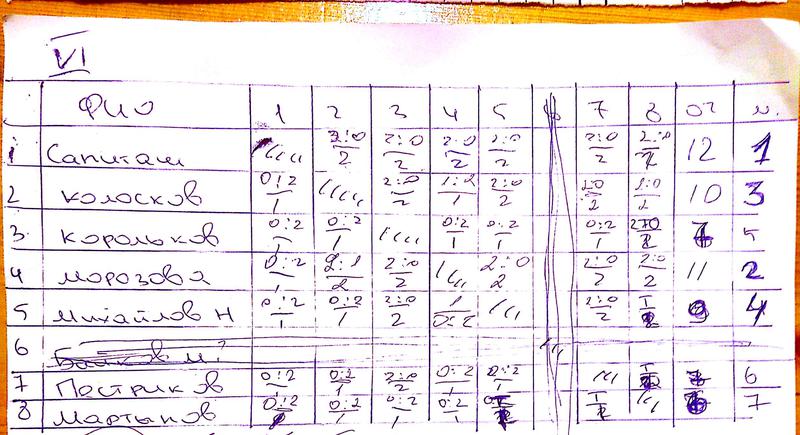 VI
ФИО 1 2 3 4 5 6 7 8 ОЧ М.
1 Сапиташ 2:0/2 2:0/2 2:0/2 2:0/2 2:0/2 2:0/2 12 1
2 Колосков 0:2/1 2:0/2 1:2/1 2:0/2 2:0/2 2:0/2 10 3
3 Корольков 0:2/1 0:2/1 0:2/1 0:2/1 0:2/1 5
4 Морозова 0:2/1 2:1/2 2:0/2 2:0/2 2:0/2 2:0/2 11 2
5 Михайлов Н 0:2/1 0:2/1 2:0/2 1/0:2 2:0/2 9 4
6
7 Постриков 0:2/1 0:2/1 2:0/2 0:2/1 0:2/1 6
8 Мартынов 0:2 0:2/1 0:2/1 0:2/1 7